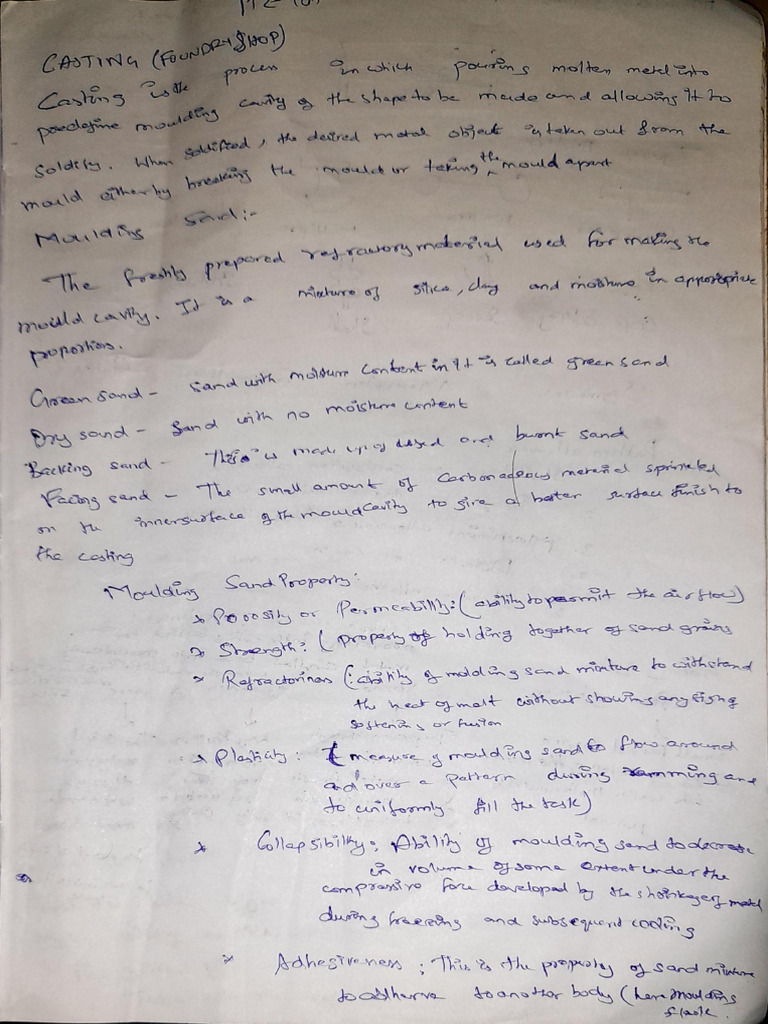 CASTING (FOUNDRY SHOP)
Casting is the process in which pouring molten metal into
predefine moulding cavity of the shape to be made and allowing it to
soldify. When soldified, the desired metal object is taken out from the
mould either by breaking the mould or taking the mould apart
Moulding Sand:-
The freshly prepared refractory material used for making the
mould cavity. It is a mixture of silica, clay and moisture in appropriate
proportions.
Green sand - Sand with moisture content in it is called green sand
Dry sand - Sand with no moisture content
Backing sand - This is made up of used and burnt sand
Facing sand - The small amount of carbonaceous material sprinkled
on the inner surface of the mould cavity to give a better surface finish to
the casting
Moulding Sand Property:
* Porosity or Permeability: (ability to permit the air flow)
* Strength: (property of holding together of sand grains
* Refractoriness (: ability of molding sand mixture to withstand
the heat of melt without showing any sign of
softening or fusion
* Plasticity: (measure of moulding sand to flow around
and over a pattern during ramming and
to uniformly fill the task)
* Collapsibility: Ability of moulding sand to decrease
in volume of some extent under the
compressive force developed by the shrinkage of metal
during freezing and subsequent cooling
* Adhesiveness: This is the property of sand mixture
to adherve to another body (here moulding
flask.